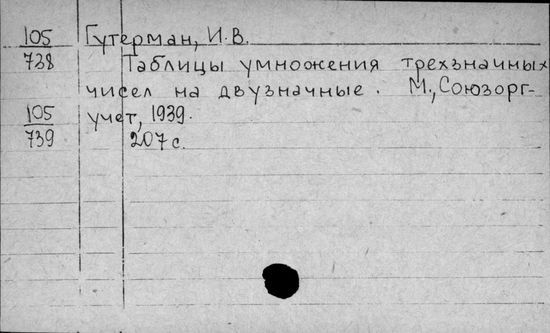 105 Гутерман, И.В.
738 Таблицы умножения трехзначных
чисел на двузначные. М., Союзорг-
105 учет, 1939.
739 207 с.